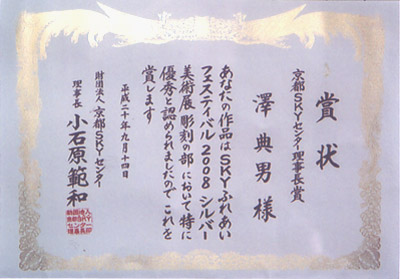 賞状
京都SKYセンター理事長賞
澤典男様
あなたの作品はSKYふれあい
フェスティバル2008シルバー
美術展彫刻の部において特に
優秀と認められましたのでこれを
賞します
平成二十年九月十四日
財団法人京都SKYセンター
理事長小石原範和
財団法人
京都SKY
センター
理事長印